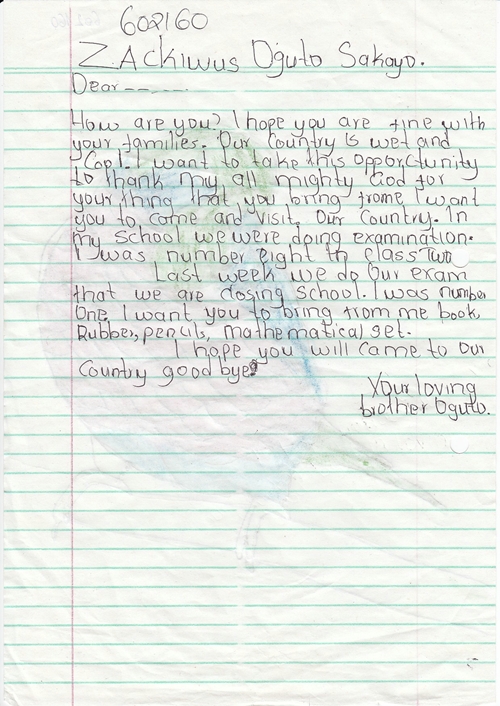 602160
ZACKIWUS Oguto Sakayo.
Dear -- -- . --.
How are you? I hope you are fine with
your families. Our Country is wet and
Cool. I want to take this opporctunity
to thank my all mighty God for
your thing that you bring frome I want
you to come and visit Our Country. In
my School we were doing examination.
I was number eight in class Two
Last week we do Our exam
that we are closing school. I was number
One. I want you to bring from me book,
Rubber, pencils, mathematical set.
I hope you will came to Our
Country good bye
Your loving
brother Oguto.